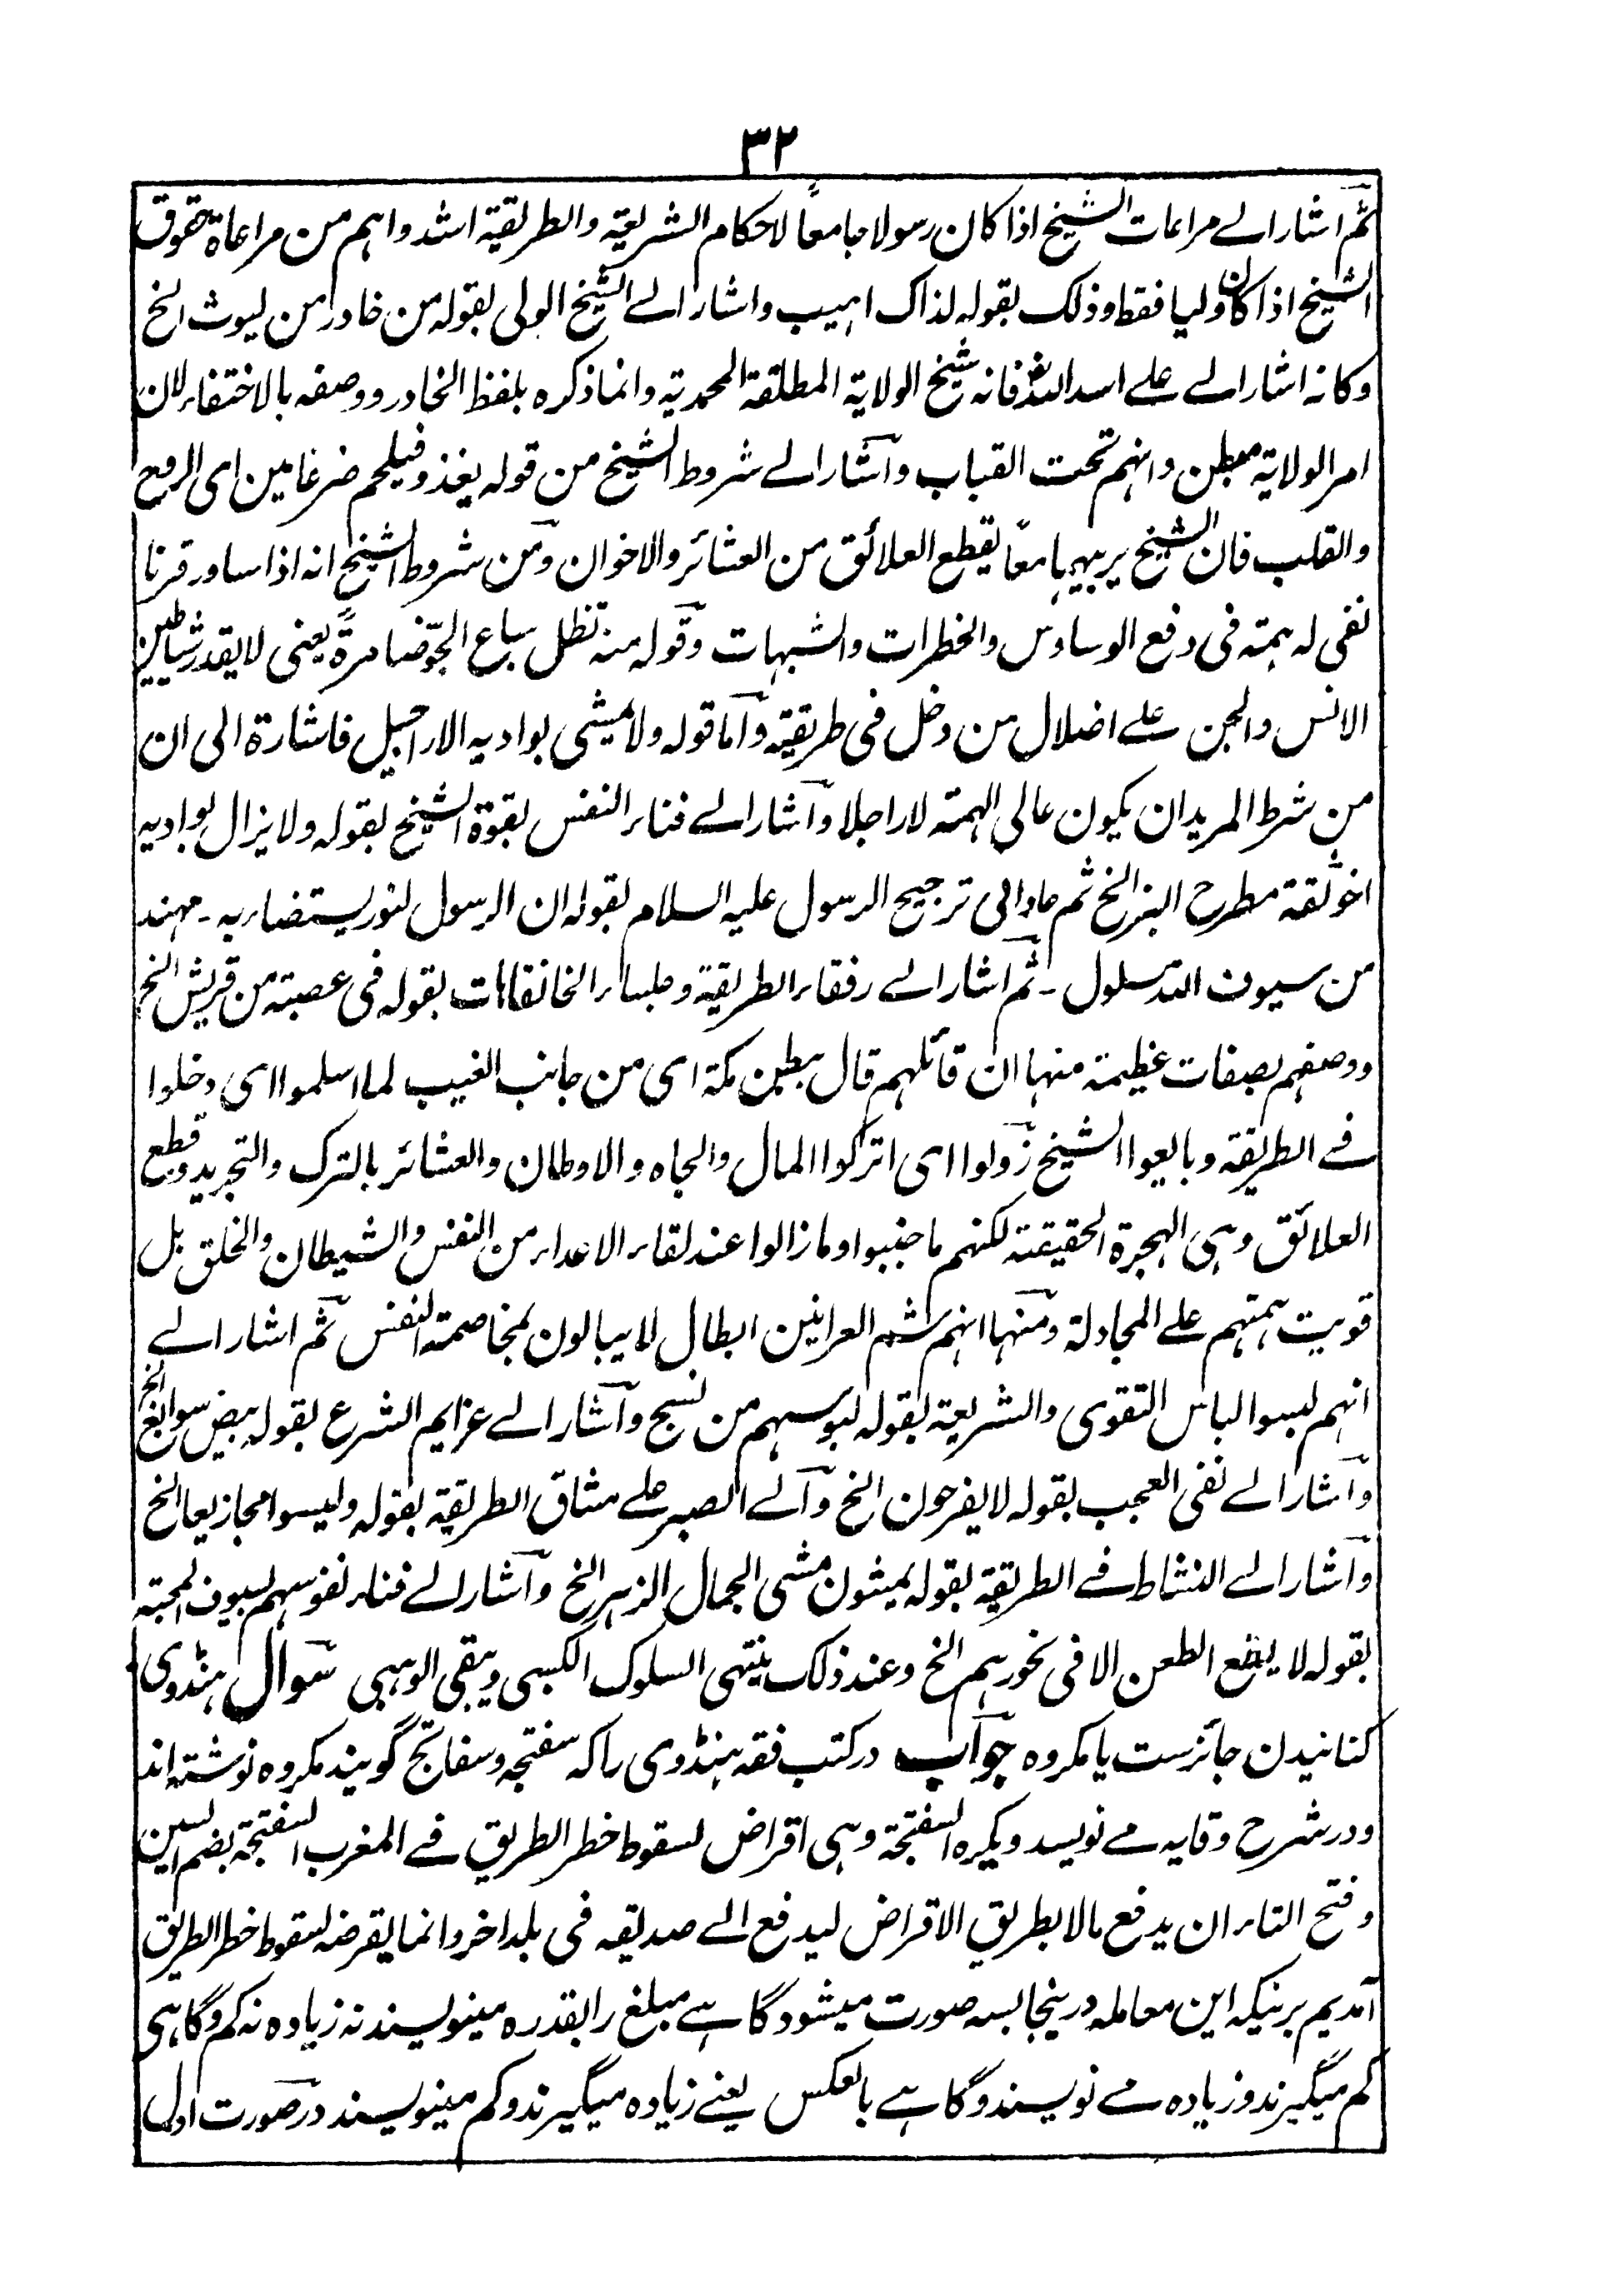 ٣٢
ثم اشار الے مراعات الشیخ اذا کان رسولا جامعاً لاحکام الشریعۃ والطریقیۃ اشد واہم من مراعاۃ حقوق
الشیخ اذا کان ولیا فقط وذلک بقولہ لذاک اہیب واشار الے الشیخ الولی بقولہ من خادر من لیوث الخ
وکانہ اشار الے علے اسد اللہ فانہ شیخ الولایۃ المطلقۃ المحمدیۃ وانما ذکرہ بلفظ الخادر ووصفہ بالاختفاء لان
امر الولایۃ مبطن وانہم تحت القباب وآشار الے شروط الشیخ من قولہ یغذو فیلحم ضرغامین ای الروح
والقلب فان الشیخ یربیہما معاً یقطع العلائق من العشائر والاخوان ومن شروط الشیخ انہ اذا ساور قرنا
نفی لہ ہمتہ فی دفع الوساوس والخطرات والشبہات وقولہ منہ تظل سباع الجوّ ضامرۃً یعنی لا یقدر شیاطین
الانس والجن علے اضلال من دخل فی طریقیۃ وآما قولہ ولا یمیشی بوادیہ الاراجیل فاشارۃ الی ان
من شرط المرید ان یکون عالی الہمۃ لا راجلا وآشار الے فناء النفس بقوۃ الشیخ بقولہ ولا یزال بوادیہ
اخو ثقۃ مطرح البز الخ ثم عاد الی ترجیح الرسول علیہ السلام بقولہ ان الرسول لنور یستضاء بہ ۔ مہند
من سیوف اللہ مسلول ۔ ثم اشار الے رفقاء الطریقۃ وجلساء الخانقاہات بقولہ فی عصبۃ من قریش الخ
ووصفہم بصفات عظیمۃ منہا ان قائلہم قال ببطن مکۃ ای من جانب الغیب لما اسلموا ای دخلوا
فے الطریقۃ وبایعوا الشیخ زولوا ای اترکوا المال والجاہ والاوطان والعشائر بالترک والتجرید وقطع
العلائق وہی الہجرۃ الحقیقۃ لکنہم ما جنبوا وما زالوا عند لقاء الاعداء من النفس والشیطان والخلق بل
قویت ہمتہم علے المجادلۃ ومنہا انہم شم العرانین ابطال لا یبالون بمخاصمۃ النفس ثم اشار الے
انہم لبسوا لباس التقوی والشریعۃ بقولہ لبوسہم من نسج وآشار الے عزایم الشرع بقولہ بیض سوابغ الخ
وآشار الے نفی العجب بقولہ لا یفرحون الخ وآلے الصبر علے مشاق الطریقۃ بقولہ ولیسوا مجازیعا الخ
وآشار الے النشاط فے الطریقۃ بقولہ یمشون مشی الجمال الزہر الخ وآشار الے فناء نفوسہم بسیوف المحبۃ
بقولہ لا یقع الطعن الا فی نحورہم الخ وعند ذلک ینتہی السلوک الکسبی ویبقی الوہبی سوال ہنڈوی
کنانیدن جائزست یا مکروہ جواب درکتب فقہ ہنڈوی راکہ سفتجہ وسفاتج گویند مکروہ نوشتہ اند
ودر شرح وقایہ مے نویسد ویکرہ السفتجۃ وہی اقراض لسقوط خطر الطریق فے المغرب السفتجۃ بضم السین
وفتح التاء ان یدفع مالا بطریق الاقراض لیدفع الے صدیقہ فی بلد اخر وانما یقرضہ لسقوط خطر الطریق
آمدیم برنیکہ این معاملہ درینجا بسہ صورت میشود گاہے مبلغ را بقدرہ مینویسند نہ زیادہ نہ کم وگاہی
کم میگیرند وزیادہ مے نویسند وگاہے بالعکس یعنے زیادہ میگیرند وکم مینویسند درصورت اول